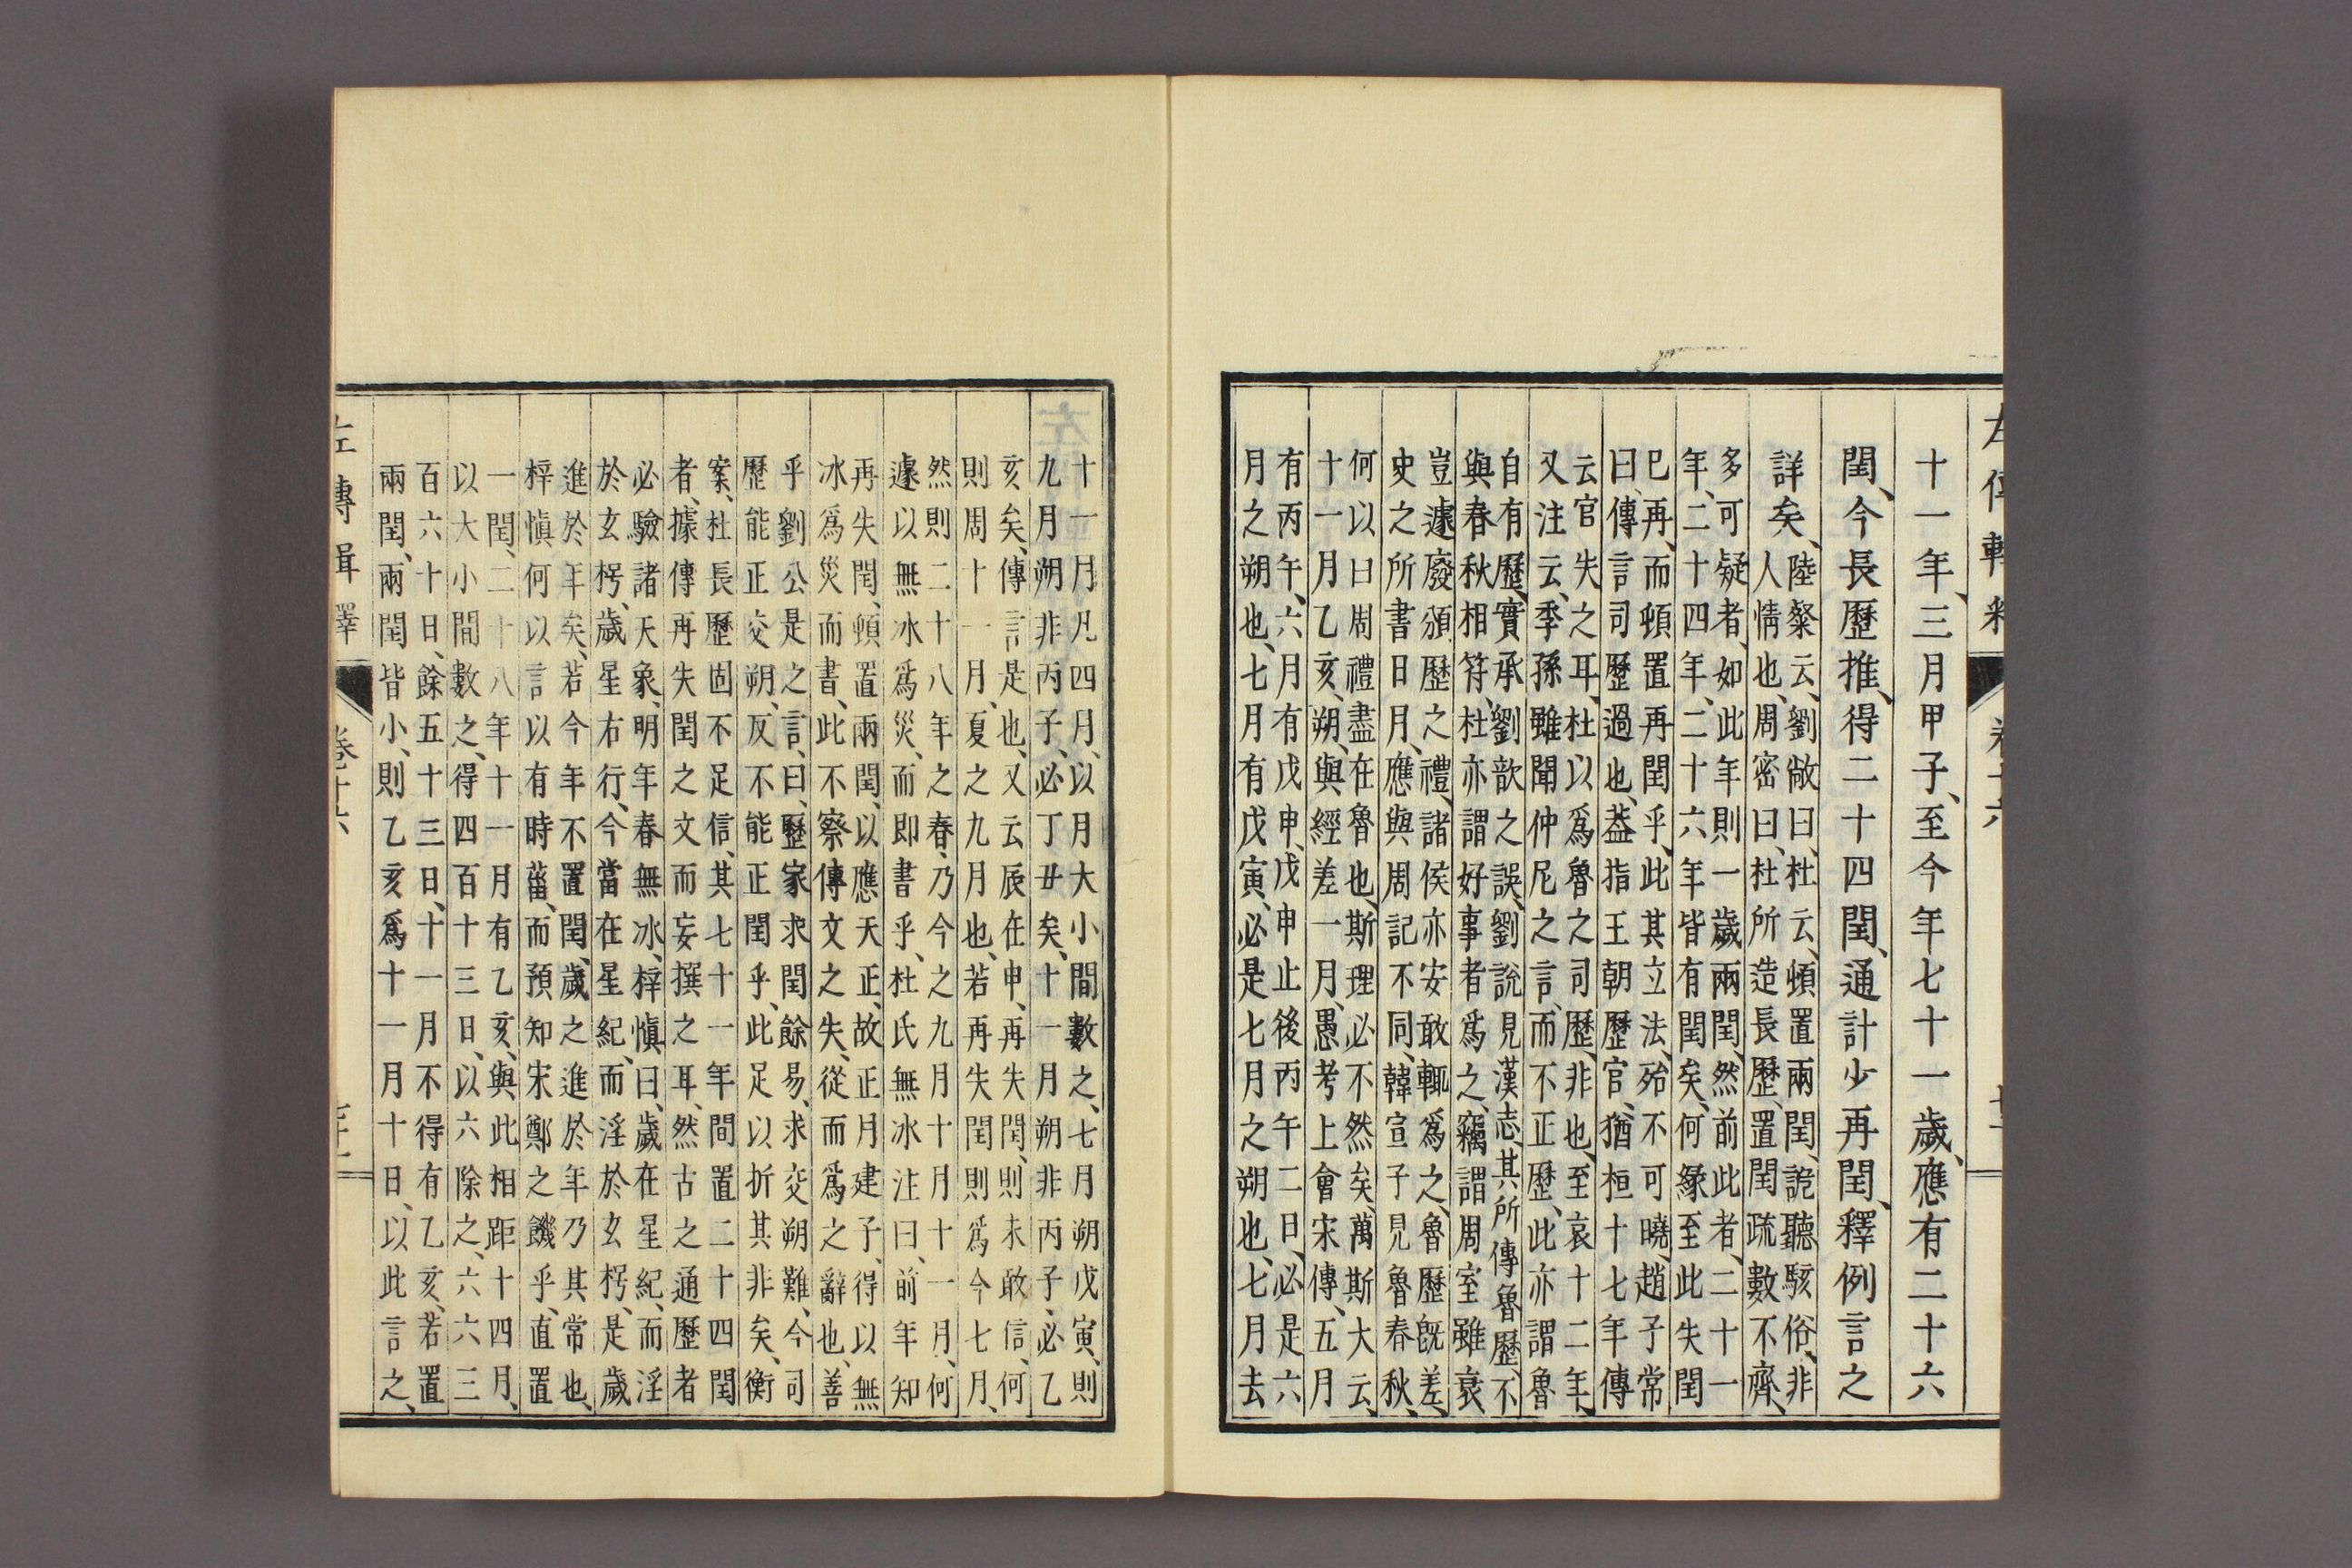 十一年、三月甲子、至今年七十一歲、應有二十六
閏、今長歷推、得二十四閏、通計少再閏、釋例言之
詳矣、
陸粲云、劉敞曰、杜云、頓置兩閏、詭聽駭俗、非
人情也、周密曰、杜所造長歷、置閏疏數不齊、
多可疑者、如此年則一歲兩閏、然前此者、二十一
年、二十四年、二十六年皆有閏矣、何緣至此失閏
已再、而頓置再閏乎、此其立法、殆不可曉、趙子常
曰、傳言司歷過也、葢指王朝歷官、猶桓十七年傳
云官失之耳、杜以爲魯之司歷、非也、至哀十二年、
又注云、季孫雖聞仲尼之言、而不正歷、此亦謂魯
自有歷、實承劉歆之誤、劉說見漢志、其所傳魯歷、不
與春秋相符、杜亦謂好事者爲之、竊謂周室雖衰
豈遽廢頒歷之禮、諸侯亦安敢輒爲之、魯歷旣差、
史之所書日月、應與周記不同、韓宣子見魯春秋、
何以曰周禮盡在魯也、斯理必不然矣、萬斯大云、
十一月乙亥、朔、與經差一月、愚考上會宋傳、五月
有丙午、六月有戊申、戊申止後丙午二日、必是六
月之朔也、七月有戊寅、必是七月之朔也、七月去
十一月、凡四月、以月大小間數之、七月朔戊寅、則
九月朔非丙子、必丁丑矣、十一月朔非丙子、必乙
亥矣、傳言是也、又云辰在申、再失閏、則未敢信、何
則周十一月、夏之九月也、若再失閏則爲今七月、
然則二十八年之春、乃今之九月十月十一月、何
遽以無冰爲災、而即書乎、杜氏無冰注曰、前年知
再失閏、頓置兩閏、以應天正、故正月建子、得以無
冰爲災而書、此不察傳文之失、從而爲之辭也、善
乎劉公是之言、曰、歷家求閏餘易、求交朔難、今司
歷能正交朔、反不能正閏乎、此足以折其非矣、衡
案、杜長歷固不足信、其七十一年間置二十四閏
者、據傳再失閏之文而妄撰之耳、然古之通歷者
必驗諸天象、明年春無冰、梓愼曰、歲在星紀、而淫
於玄枵、歲星右行、今當在星紀、而淫於玄枵、是歲
進於年矣、若今年不置閏、歲之進於年乃其常也、
梓愼何以言以有時菑、而預知宋鄭之饑乎、直置
一閏、二十八年十一月有乙亥、與此相距十四月、
以大小間數之、得四百十三日、以六除之、六六三
百六十日、餘五十三日、十一月不得有乙亥、若置
兩閏、兩閏皆小、則乙亥爲十一月十日、以此言之、
左傳輯釋
卷十六